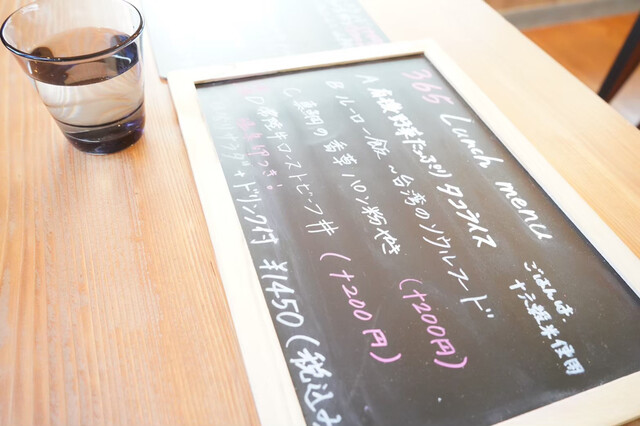 365 Lunch menu
ごはんは、
十六穀米使用
A 有機野菜たっぷり タコライス
B ルーロー飯 〜台湾のソウルフード
C 真鯛の香草パン粉やき (+200円)
D ローストビーフ丼 (+200円)
サラダ+ドリンク付 ¥1450(税込み